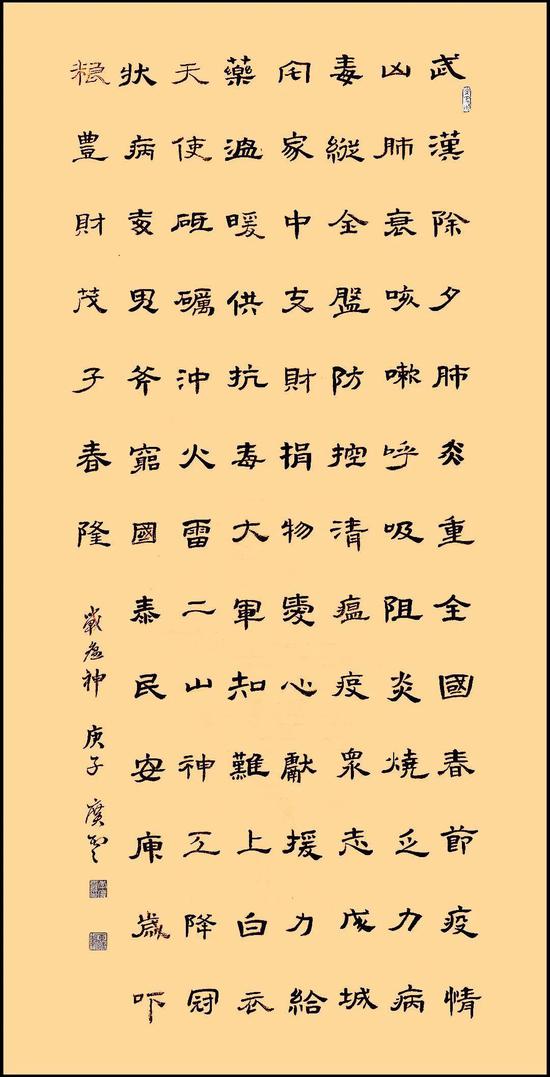 武漢除夕肺炎重全國春節疫情
凶肺衰咳嗽呼吸阻炎燒乏力病
毒縱全盤防控清瘟疫眾志成城
家中支財捐物愛心獻援力給
藥溫暖供抗毒大軍知難上白衣
天使砥礪沖火雷二山神工降冠
狀病男斧窮國泰民安庚歲吓
豐財茂子春隆
戰瘟神 庚子